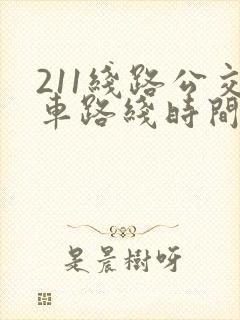 211綫路公交
車路綫時間
是晨樹呀